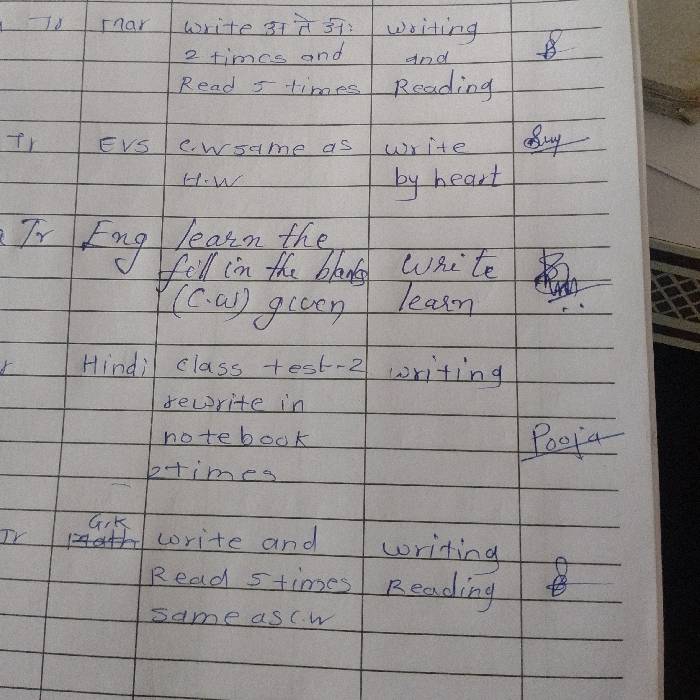 To mar write अ ते अः writing
2 times and and
Read 5 times Reading
Tr EVS C.W same as write
H.W by heart
Tr Eng learn the
fill in the blanks write
(C.W) given learn
Hindi class test-2 writing
rewrite in
notebook Pooja
2 times
G.K
Tr Math write and writing
Read 5 times Reading
same as C.W